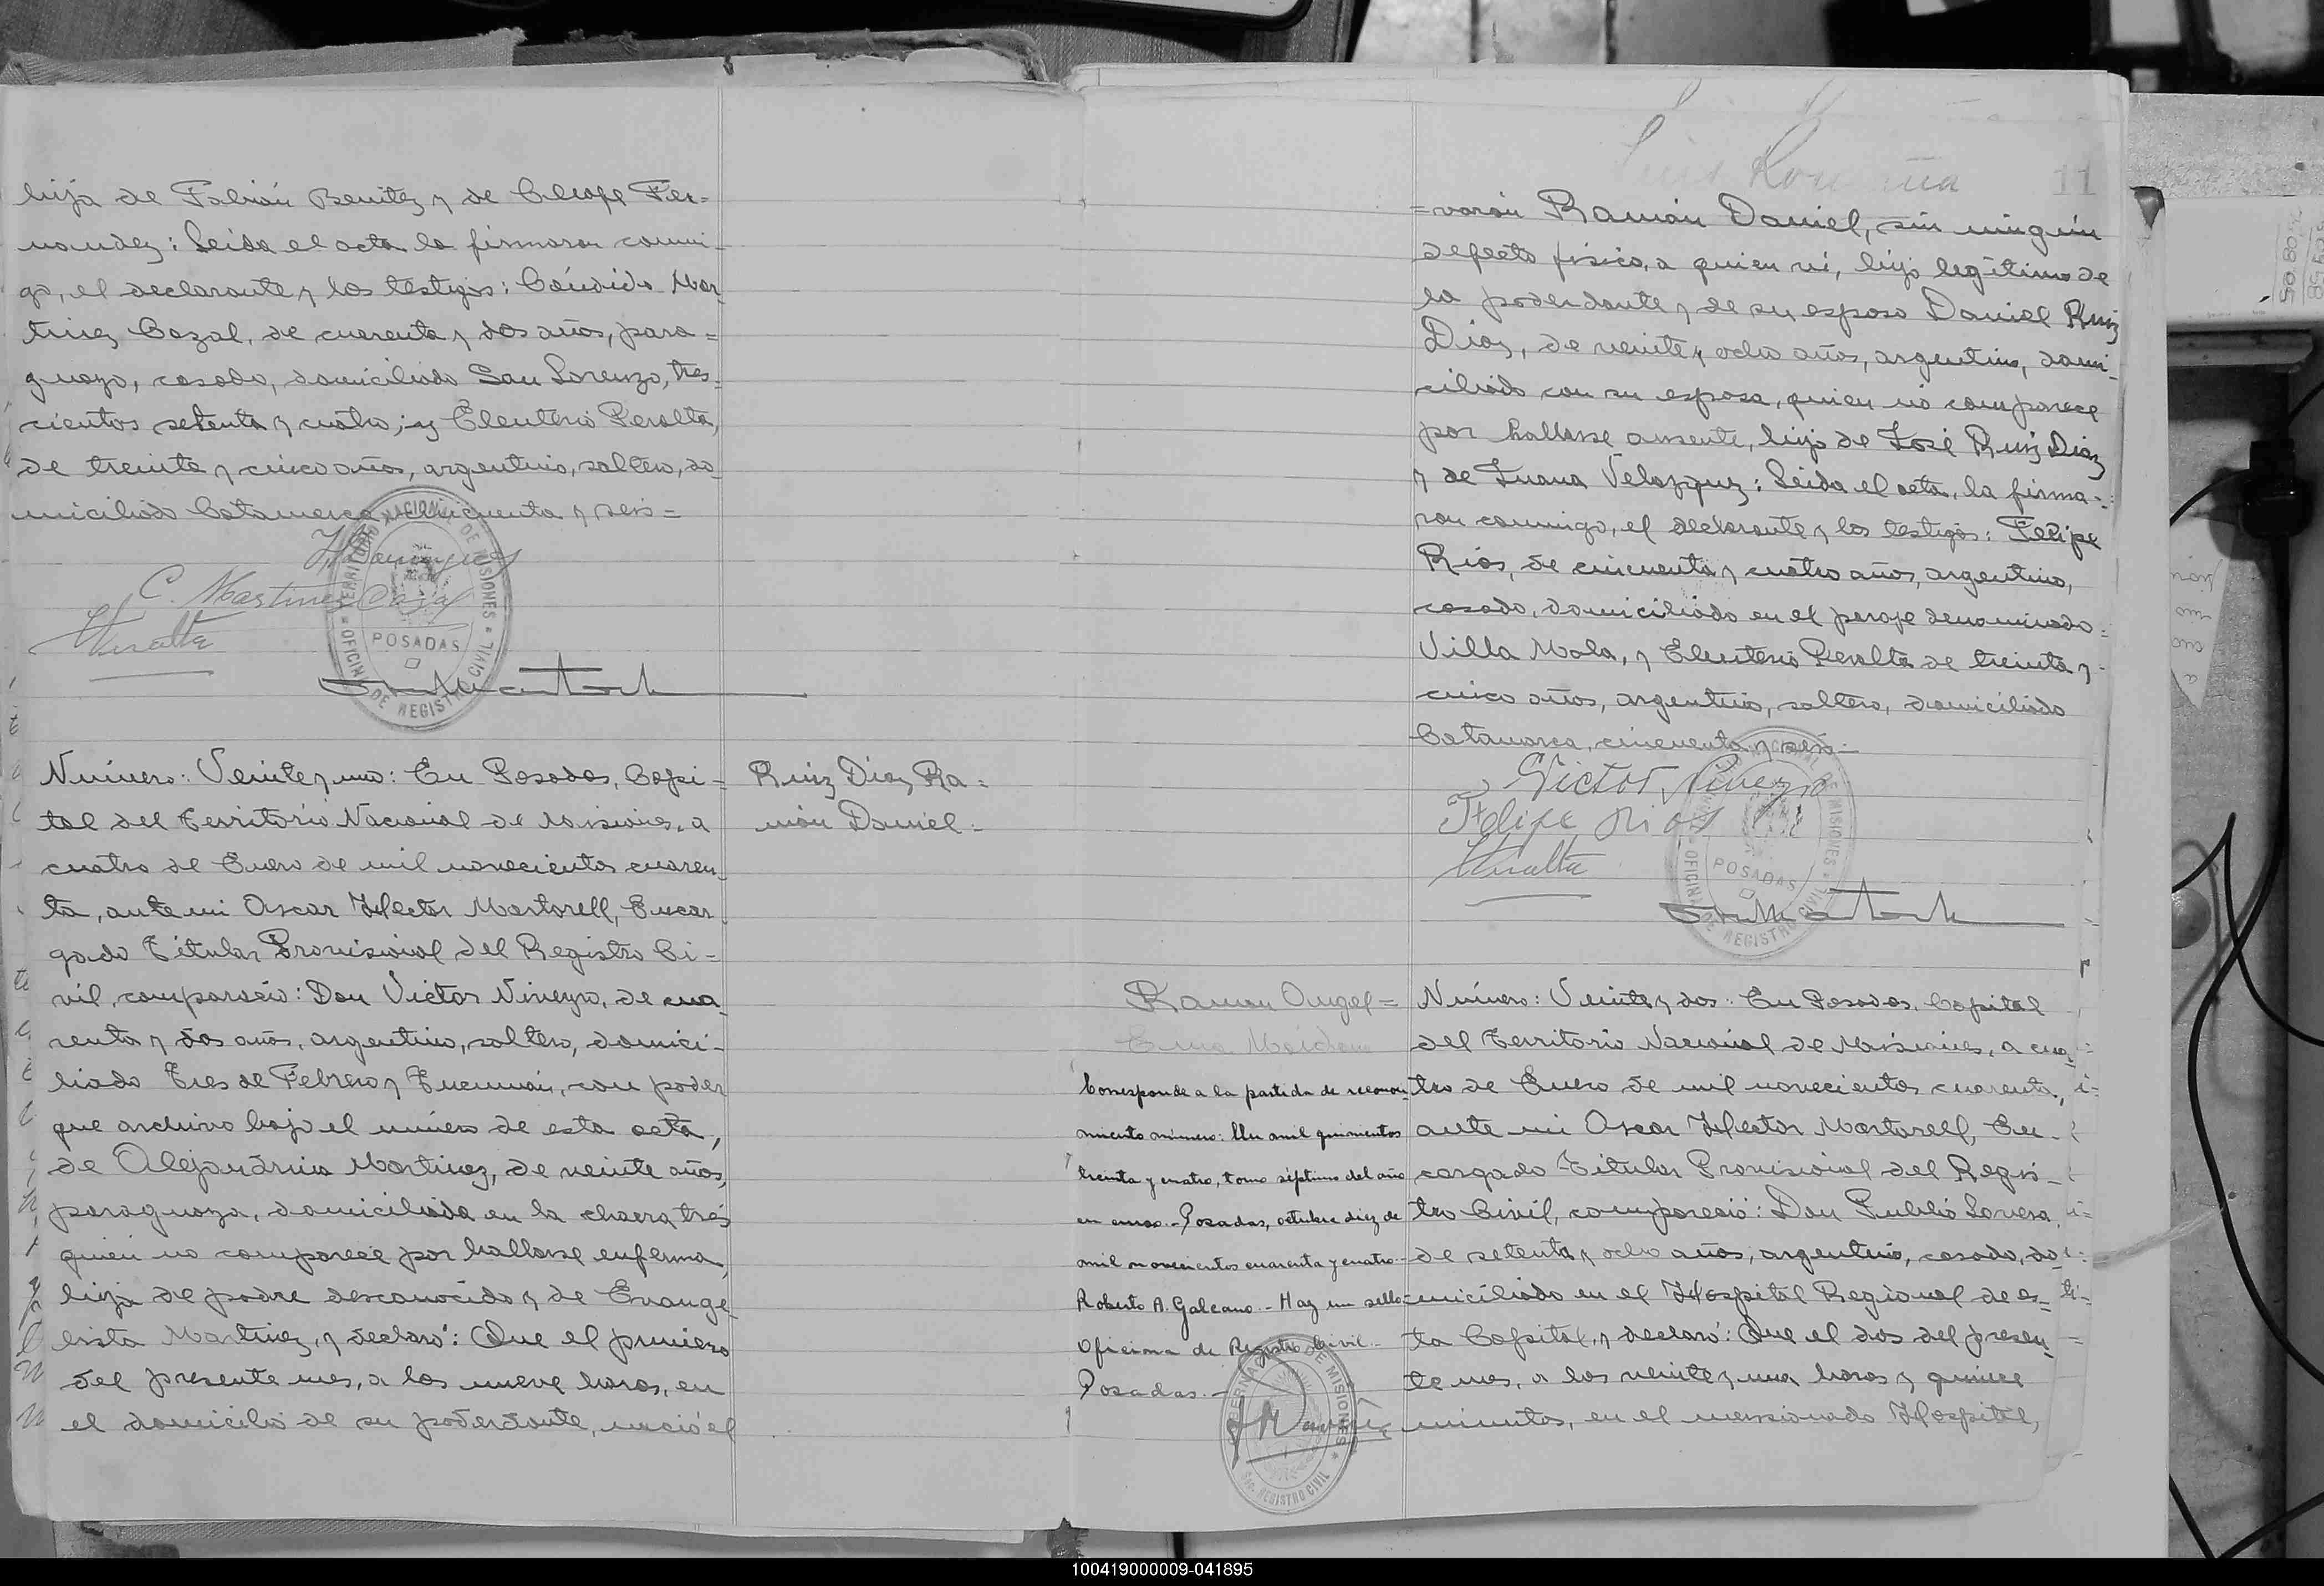 hija de Fabián Benitez y de Cleofe Fer=
nandez: Leida el acta la firmaron conmi=
go, el declarante y los testigos: Cándido Mar
tinez Cazal, de cuarenta y dos años, para=
guayo, casado, domiciliado San Lorenzo, tres=
cientos setenta y cuatro; y Eleuterio Peralta,
de treinta y cinco años, argentino, soltero, do=
miciliado Catamarca cincuenta y seis=
C. Martinez Cazal
EPeralta
TERRITORIO NACIONAL DE MISIONES
POSADAS
OFICINA DE REGISTRO CIVIL
Número: Veinte y uno: En Posadas, Capi=
tal del Territorio Nacional de Misiones, a
cuatro de Enero de mil novecientos cuaren=
ta, ante mi Oscar Hector Martorell, Encar
gado Titular Provisional del Registro Ci=
vil, compareció: Don Victor Niveyro, de cua
renta y dos años, argentino, soltero, domici=
liado Tres de Febrero y Tucumán, con poder
que archivo bajo el número de esta acta,
de Alejandrina Martinez, de veinte años,
paraguaya, domiciliada en la chacra tres
quien no comparece por hallarse enferma,
hija de padre desconocido y de Evange
lista Martinez, y declaró: Que el primero
del presente mes, a las nueve horas, en
el domicilio de su poderdante, nació el
Ruiz Diaz Ra=
món Daniel=
11
=varón Ramón Daniel, sin ningún
defecto fisico, a quien vi, hijo legítimo de
la poderdante y de su esposo Daniel Ruiz
Diaz, de veinte y ocho años, argentino, domi=
ciliado con su esposa, quien no comparece
por hallarse ausente, hijo de José Ruiz Diaz
y de Juana Velazquez: Leida el acta, la firma=
ron conmigo, el declarante y los testigos: Felipe
Rios, de cincuenta y cuatro años, argentino,
casado, domiciliado en el paraje denominado
Villa Mola, y Eleuterio Peralta de treinta y
cinco años, argentino, soltero, domiciliado
Catamarca, cincuenta y seis=
Victor Niveyro
Felipe Rios
EPeralta
TERRITORIO NACIONAL DE MISIONES
POSADAS
OFICINA DE REGISTRO CIVIL
Ramon Angel=
Corresponde a la partida de reconoci
miento número: Un mil quinientos
treinta y cuatro, tomo séptimo del año
en curso.- Posadas, octubre diez de
mil novecientos cuarenta y cuatro.-
Roberto A. Galeano.- Hay un sello:
Oficina de Registro Civil.-
Posadas.-
GOBERNACION DE MISIONES
REGISTRO CIVIL
Número: Veinte y dos: En Posadas, Capital
del Territorio Nacional de Misiones, a cua=
tro de Enero de mil novecientos cuarenta,
ante mi Oscar Hector Martorell, En=
cargado Titular Provisional del Regis=
tro Civil, compareció: Don Publio Lovera,
de setenta y ocho años, argentino, casado, do
miciliado en el Hospital Regional de es=
ta Capital, y declaró: Que el dos del presen
te mes, a las veinte y una horas y quince
minutos, en el mensionado Hospital,
100419000009-041895